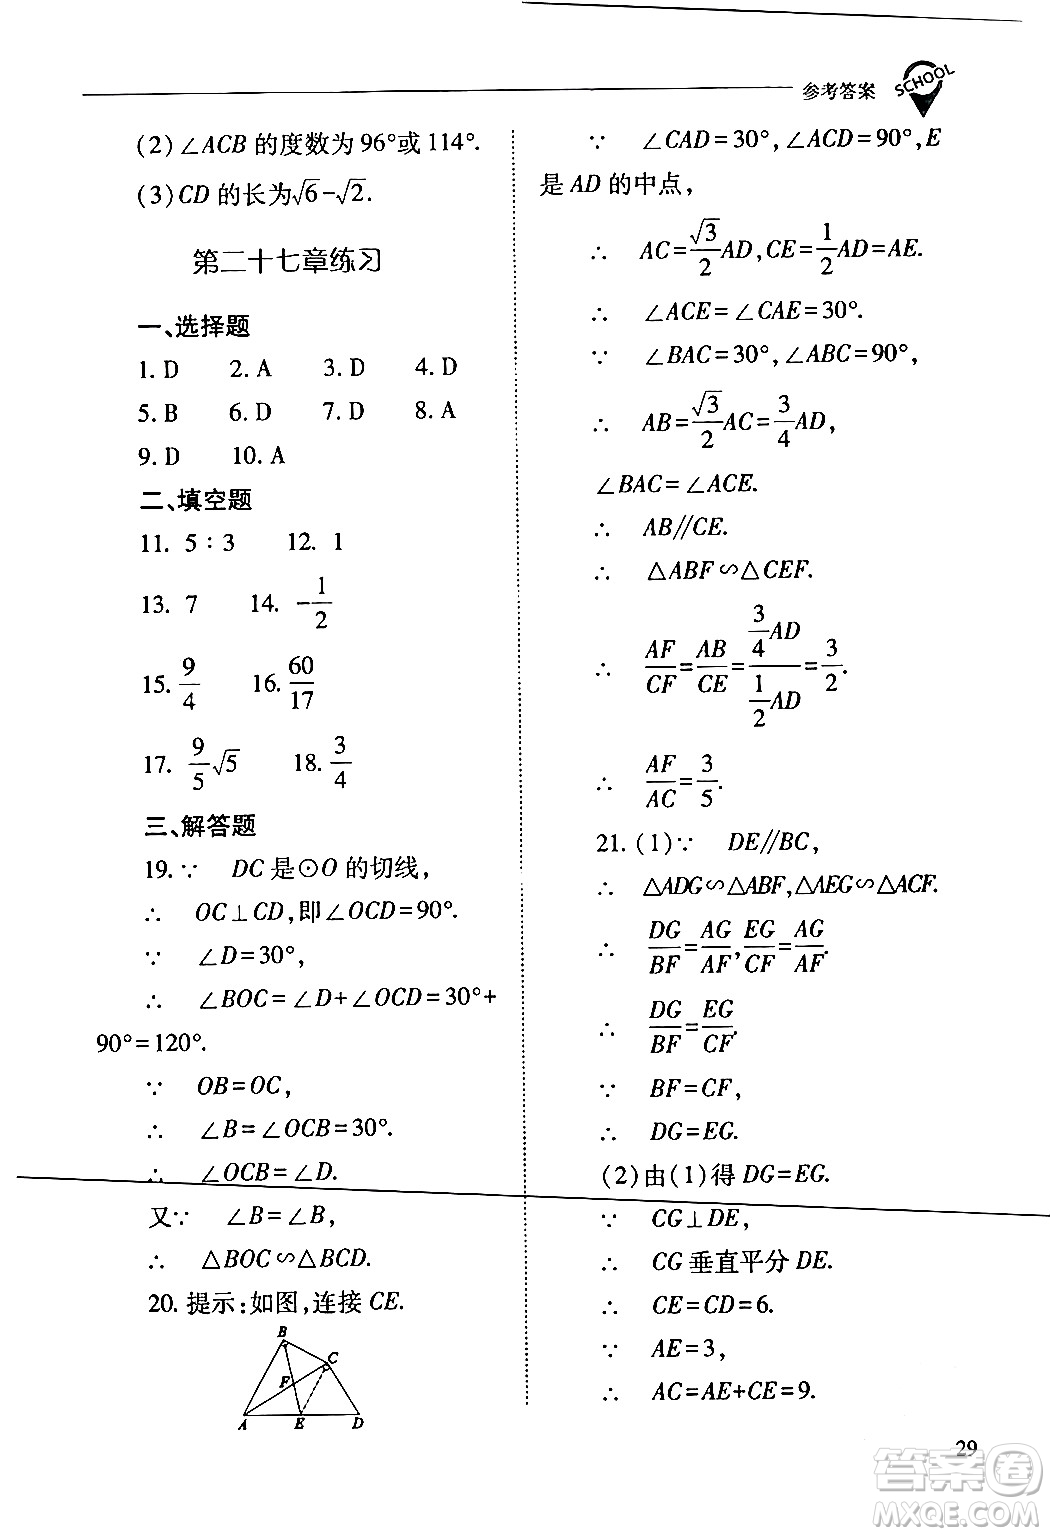 参考答案
SCHOOL
(2)∠ACB 的度数为 96°或 114°.
(3)CD 的长为√6-√2.
第二十七章练习
一、选择题
1. D 2. A 3. D 4. D
5. B 6. D 7. D 8. A
9. D 10. A
二、填空题
11. 5∶3 12. 1
13. 7 14. -1/2
15. 9/4 16. 60/17
17. 9/5√5 18. 3/4
三、解答题
19. ∵ DC 是⊙O 的切线,
∴ OC⊥CD,即∠OCD=90°.
∵ ∠D=30°,
∴ ∠BOC=∠D+∠OCD=30°+
90°=120°.
∵ OB=OC,
∴ ∠B=∠OCB=30°.
∴ ∠OCB=∠D.
又∵ ∠B=∠B,
∴ △BOC∽△BCD.
20. 提示:如图,连接 CE.
B
C
F
A E D
∵ ∠CAD=30°,∠ACD=90°,E
是 AD 的中点,
∴ AC=√3/2 AD,CE=1/2 AD=AE.
∴ ∠ACE=∠CAE=30°.
∵ ∠BAC=30°,∠ABC=90°,
∴ AB=√3/2 AC=3/4 AD,
∠BAC=∠ACE.
∴ AB//CE.
∴ △ABF∽△CEF.
∴ AF/CF=AB/CE=(3/4 AD)/(1/2 AD)=3/2.
∴ AF/AC=3/5.
21. (1)∵ DE//BC,
∴ △ADG∽△ABF,△AEG∽△ACF.
∴ DG/BF=AG/AF,EG/CF=AG/AF.
∴ DG/BF=EG/CF.
∵ BF=CF,
∴ DG=EG.
(2)由(1)得 DG=EG.
∵ CG⊥DE,
∴ CG 垂直平分 DE.
∴ CE=CD=6.
∵ AE=3,
∴ AC=AE+CE=9.
29
答案圈
MXQE.COM